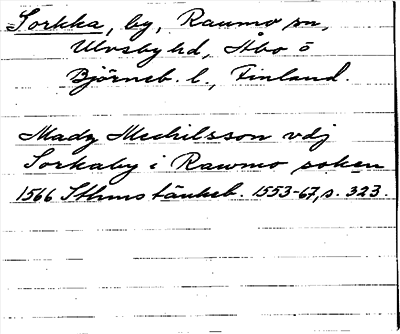 Sorkka, by, Raumo sn,
Ulvsby hd, Åbo o
Björneb. l., Finland.
Mady Michilsson vdj
Sorkaby i Rawmo soken
1566 Sthms tänkeb. 1553-67, s. 323.